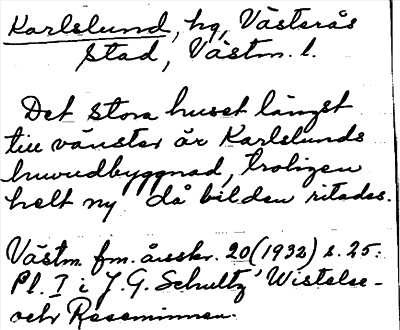 Karlslund, hg, Västerås
stad, Västm. l.
Det stora huset längst
till vänster är Karlslunds
huvudbyggnad, troligen
helt ny då bilden ritades.
Västm. fm. årsskr. 20 (1932) s. 25.
Pl. I i J. G. Schultz' Wistelse-
och Reseminnen.